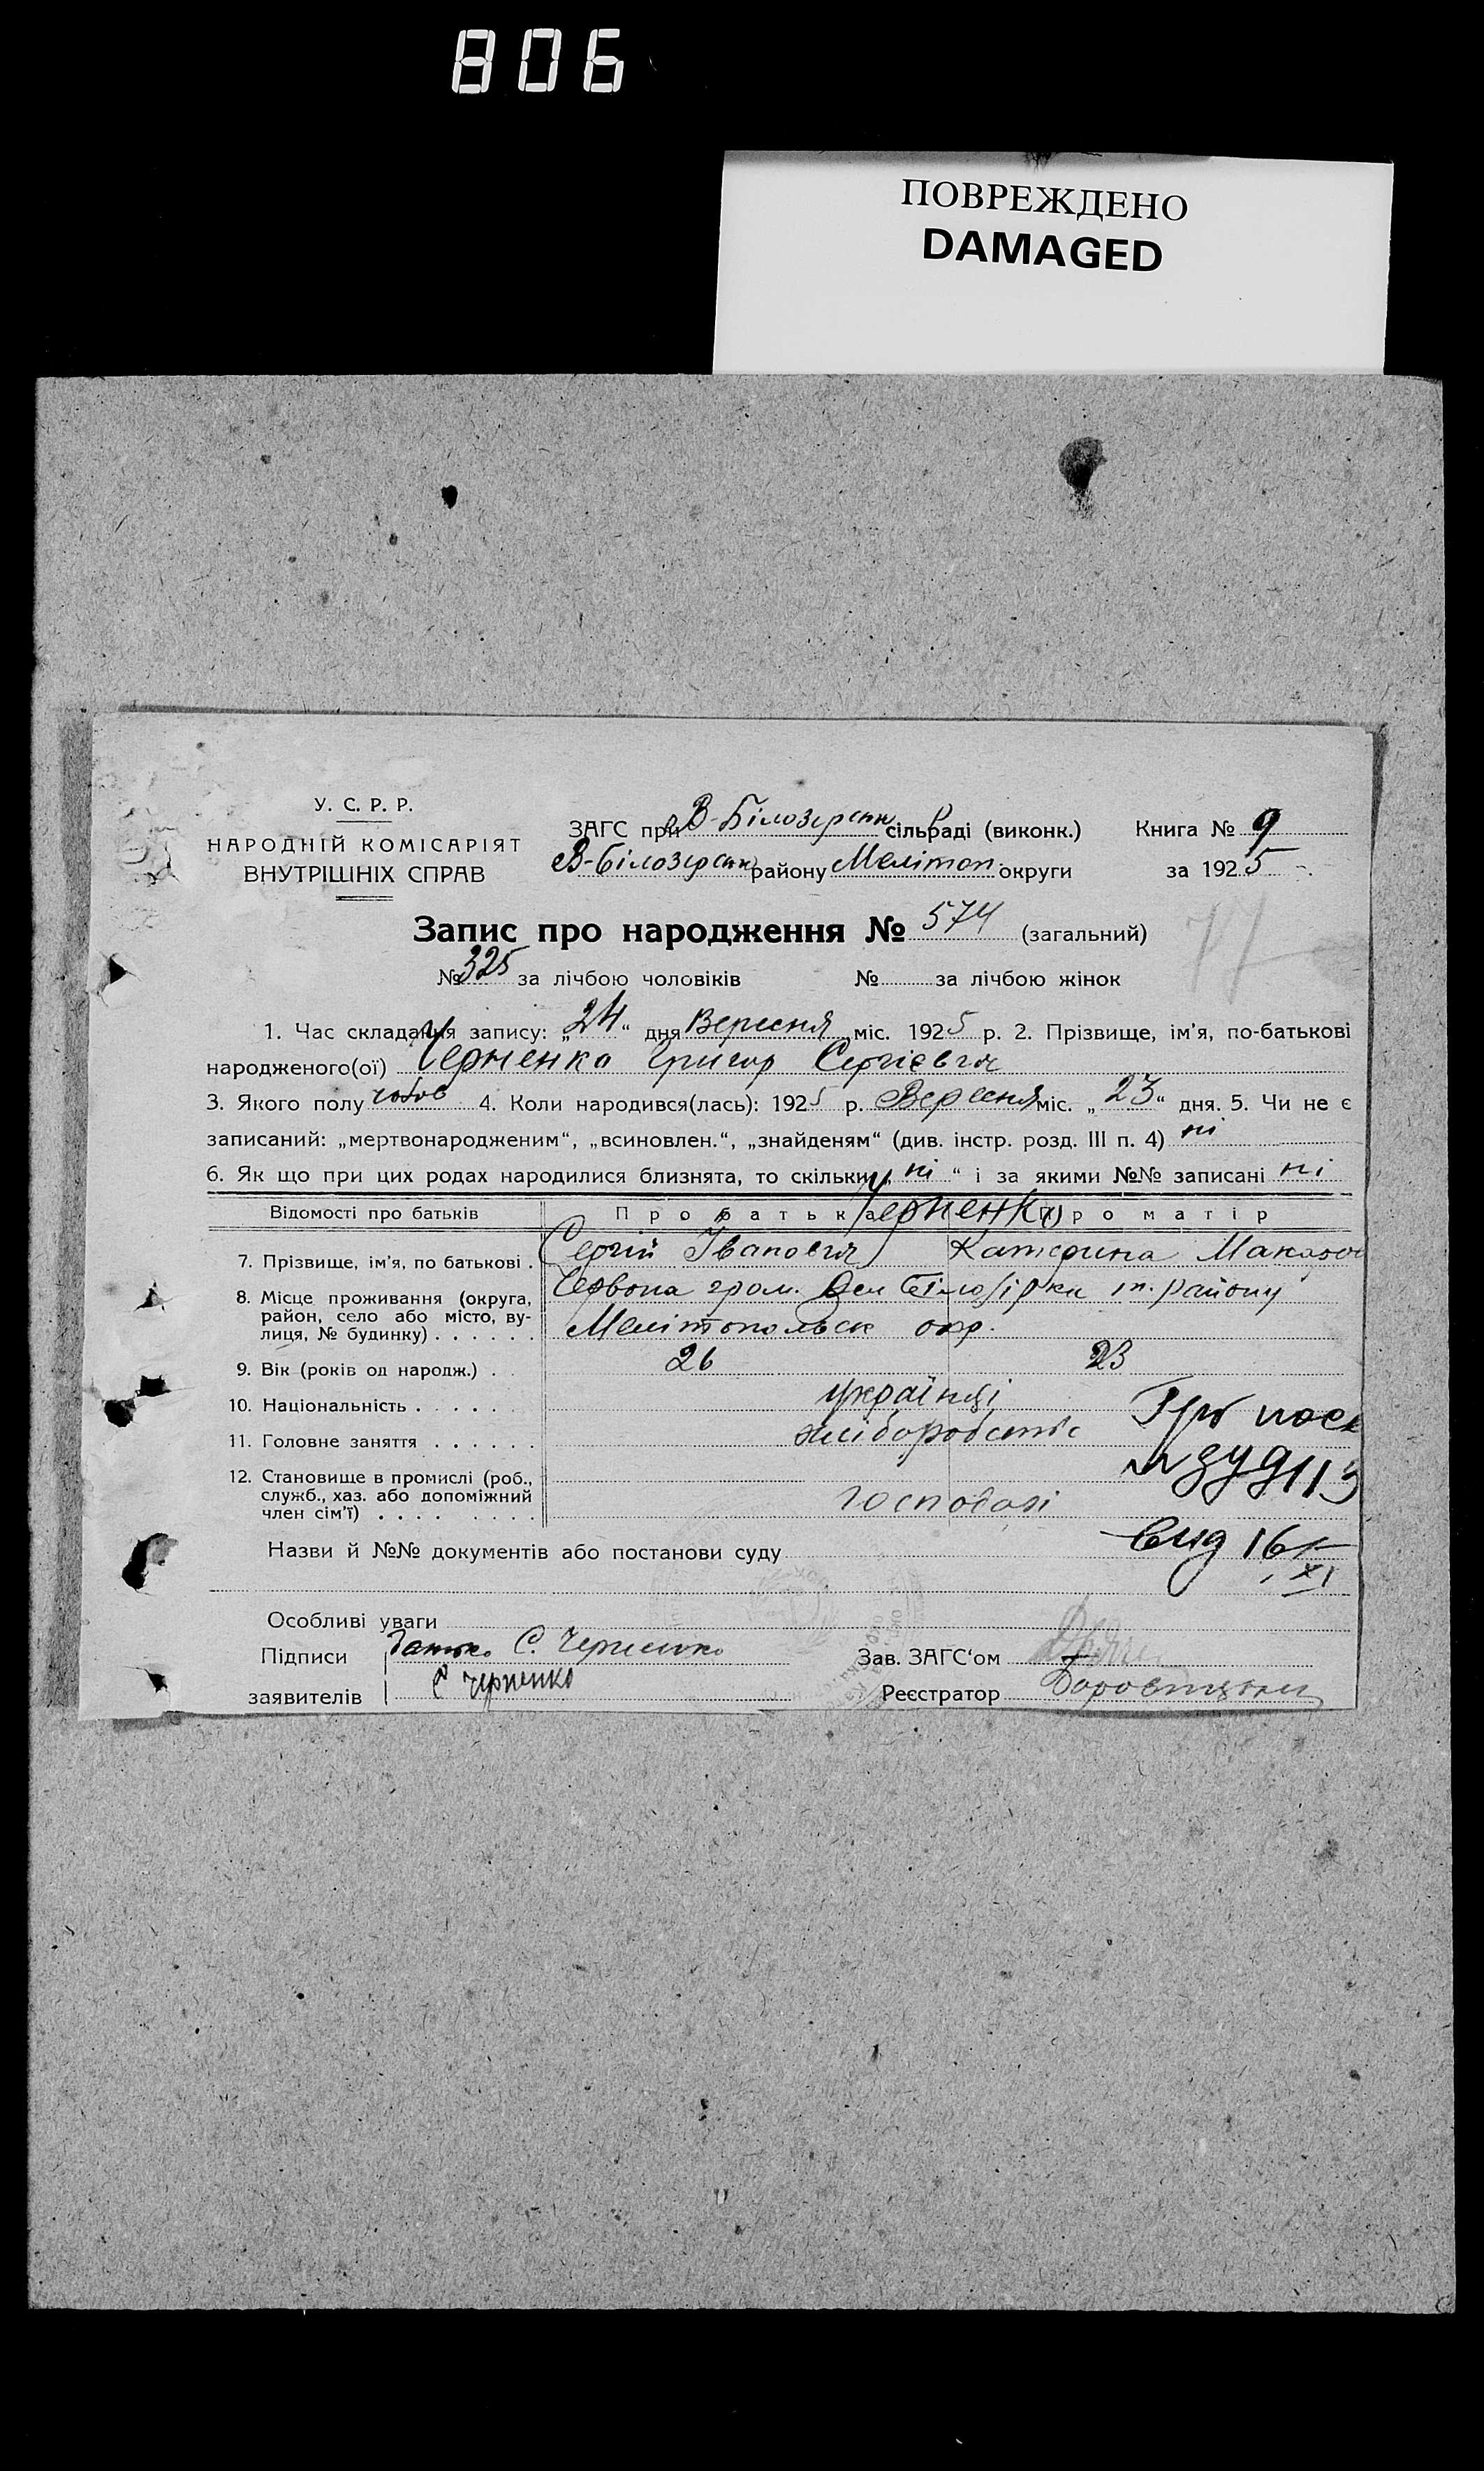 806
ПОВРЕЖДЕНО
DAMAGED
У. С. Р. Р.
НАРОДНІЙ КОМІСАРІЯТ
ВНУТРІШНІХ СПРАВ
ЗАГС при В-Білозерськ сільраді (виконк.)
В-Білозерськ району Мелітоп. округи
Книга № 9
за 1925
Запис про народження № 574 (загальний)
77
№ 325 за лічбою чоловіків № за лічбою жінок
1. Час складання запису: „24“ дня Вересня міс. 1925 р. 2. Прізвище, ім’я, по-батькові
народженого(ої) Черненко Григор Сергієвич
3. Якого полу чолов 4. Коли народився(лась): 1925 р. Вересня міс. „23“ дня. 5. Чи не є
записаний: „мертвонародженим“, „всиновлен.“, „знайденям“ (див. інстр. розд. III п. 4) ні
6. Як що при цих родах народилися близнята, то скільки „ні“ і за якими №№ записані ні
Відомості про батьків Про батька Про матір
Черненко
7. Прізвище, ім’я, по батькові . Сергій Іванович Катерина Макаров
8. Місце проживання (округа, район, село або місто, вулиця, № будинку) . . . . . . Червона гром. Вел Білозірка т. району
Мелітопольск окр.
9. Вік (років од народж.) . . 26 23
10. Національність . . . . . українці
11. Головне заняття . . . . . . хліборобство
12. Становище в промислі (роб.,
служб., хаз. або допоміжний
член сім’ї) . . . . . . . . господарі
Назви й №№ документів або постанови суду
16/XI
Особливі уваги
Підписи Батько С. Черненко
заявителів С Черненко
Зав. ЗАГС‘ом
Реєстратор